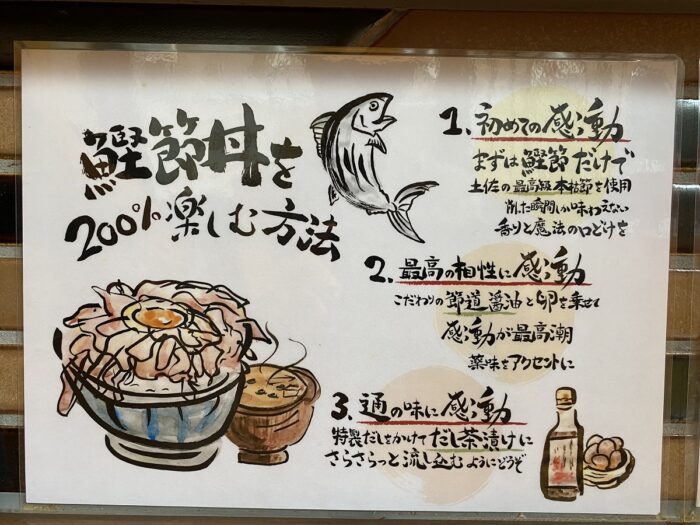 鰹節丼を
200%楽しむ方法
1. 初めての感動
まずは鰹節だけで
土佐の最高級本枯節を使用
削った瞬間しか味わえない
香りと魔法の口どけを
2. 最高の相性に感動
こだわりの節道醤油と卵を乗せて
感動が最高潮
薬味をアクセントに
3. 通の味に感動
特製だしをかけてだし茶漬けに
さらさらっと流し込むようにどうぞ